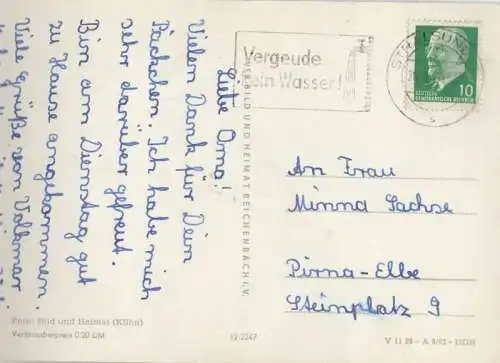 Liebe Oma!
Vielen Dank für Dein
Päckchen. Ich habe mich
sehr darüber gefreut.
Bin am Dienstag gut
zu Hause angekommen.
Viele Grüße von Volkmar
Vergeude
kein Wasser!
STRALSUND
s
10
DEUTSCHE
DEMOKRATISCHE REPUBLIK
BILD UND HEIMAT REICHENBACH I. V.
An Frau
Minna Sachse
Pirna-Elbe
Steinplatz 9
Foto: Bild und Heimat (Kühn)
Verbraucherpreis 0.20 DM
12/2247
V 11 28 - A 1/62 - DDR